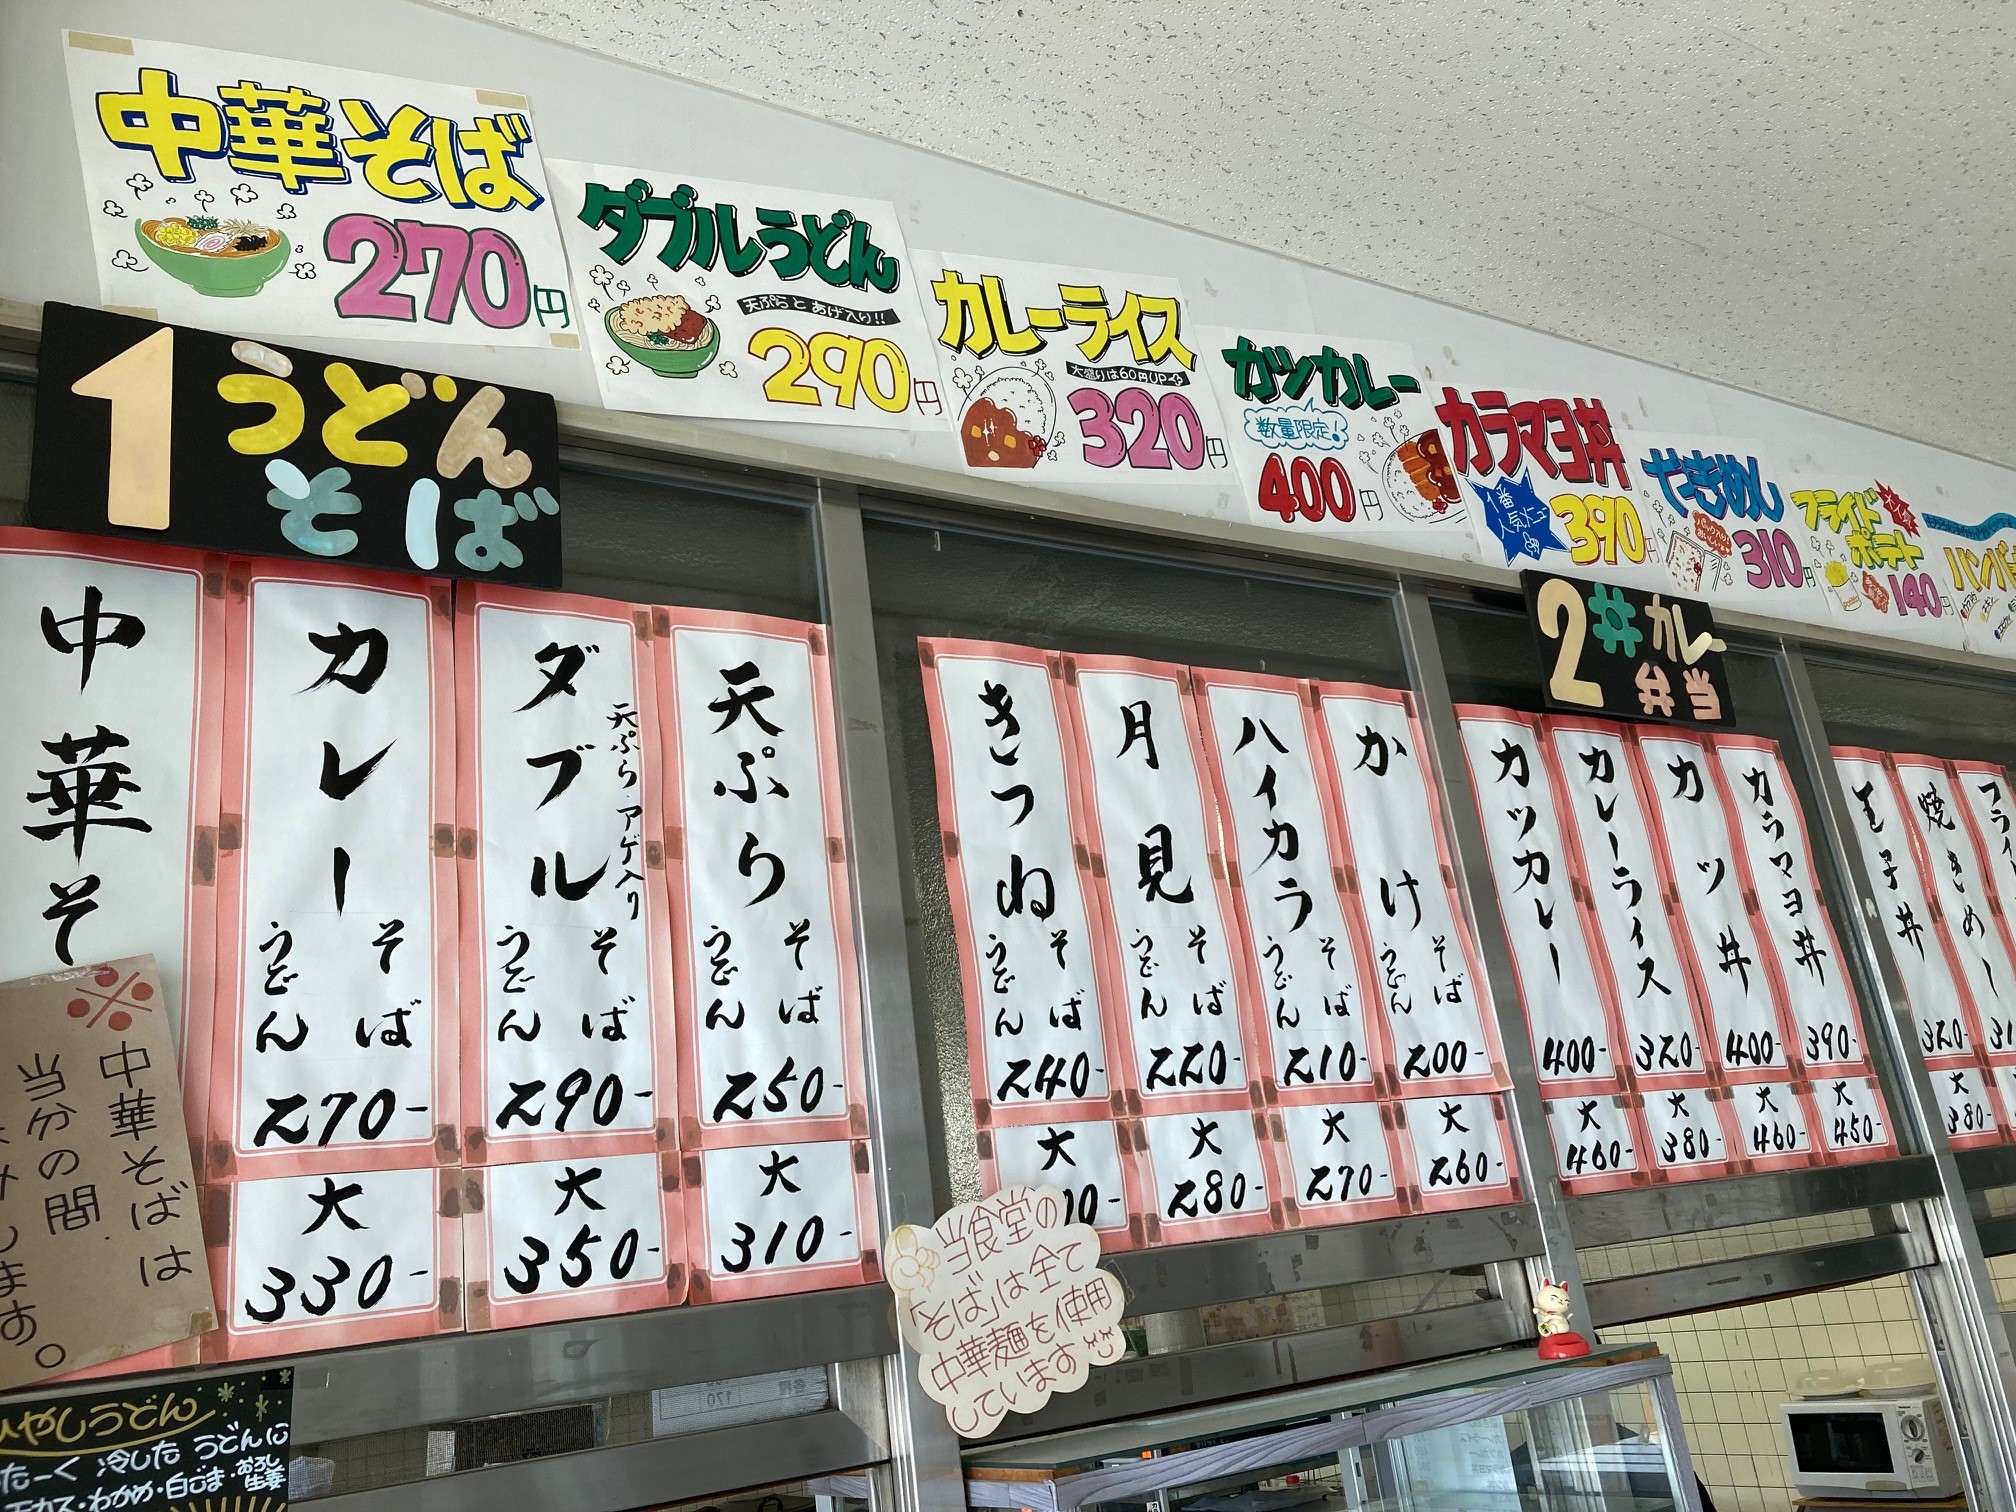 中華そば
270円
ダブルうどん
天ぷらとあげ入り!!
290円
カレーライス
大盛りは60円UP
320円
カツカレー
数量限定!
400円
カラマヨ丼
一番人気メニュー
390
やきめし
310円
フライドポテト
140円
1 うどん
そば
2 丼 カレー
弁当
中華そ
カレー
そば
うどん
270-
大
330-
ダブル
天ぷら・アゲ入り
そば
うどん
290-
大
350-
天ぷら
そば
うどん
250-
大
310-
きつね
そば
うどん
240-
大
月見
そば
うどん
220-
大
280-
ハイカラ
そば
うどん
210-
大
270-
かけ
そば
うどん
200-
大
260-
カツカレー
400-
大
460-
カレーライス
320-
大
380-
カツ丼
400-
大
460-
カラマヨ丼
390-
大
450-
玉子丼
320-
大
380-
焼きめし
※
中華そばは
当分の間
します。
当食堂の
「そば」は全て
中華麺を使用
しています
ひやしうどん
冷したうどんに
わかめ・白ごま・おろし生姜